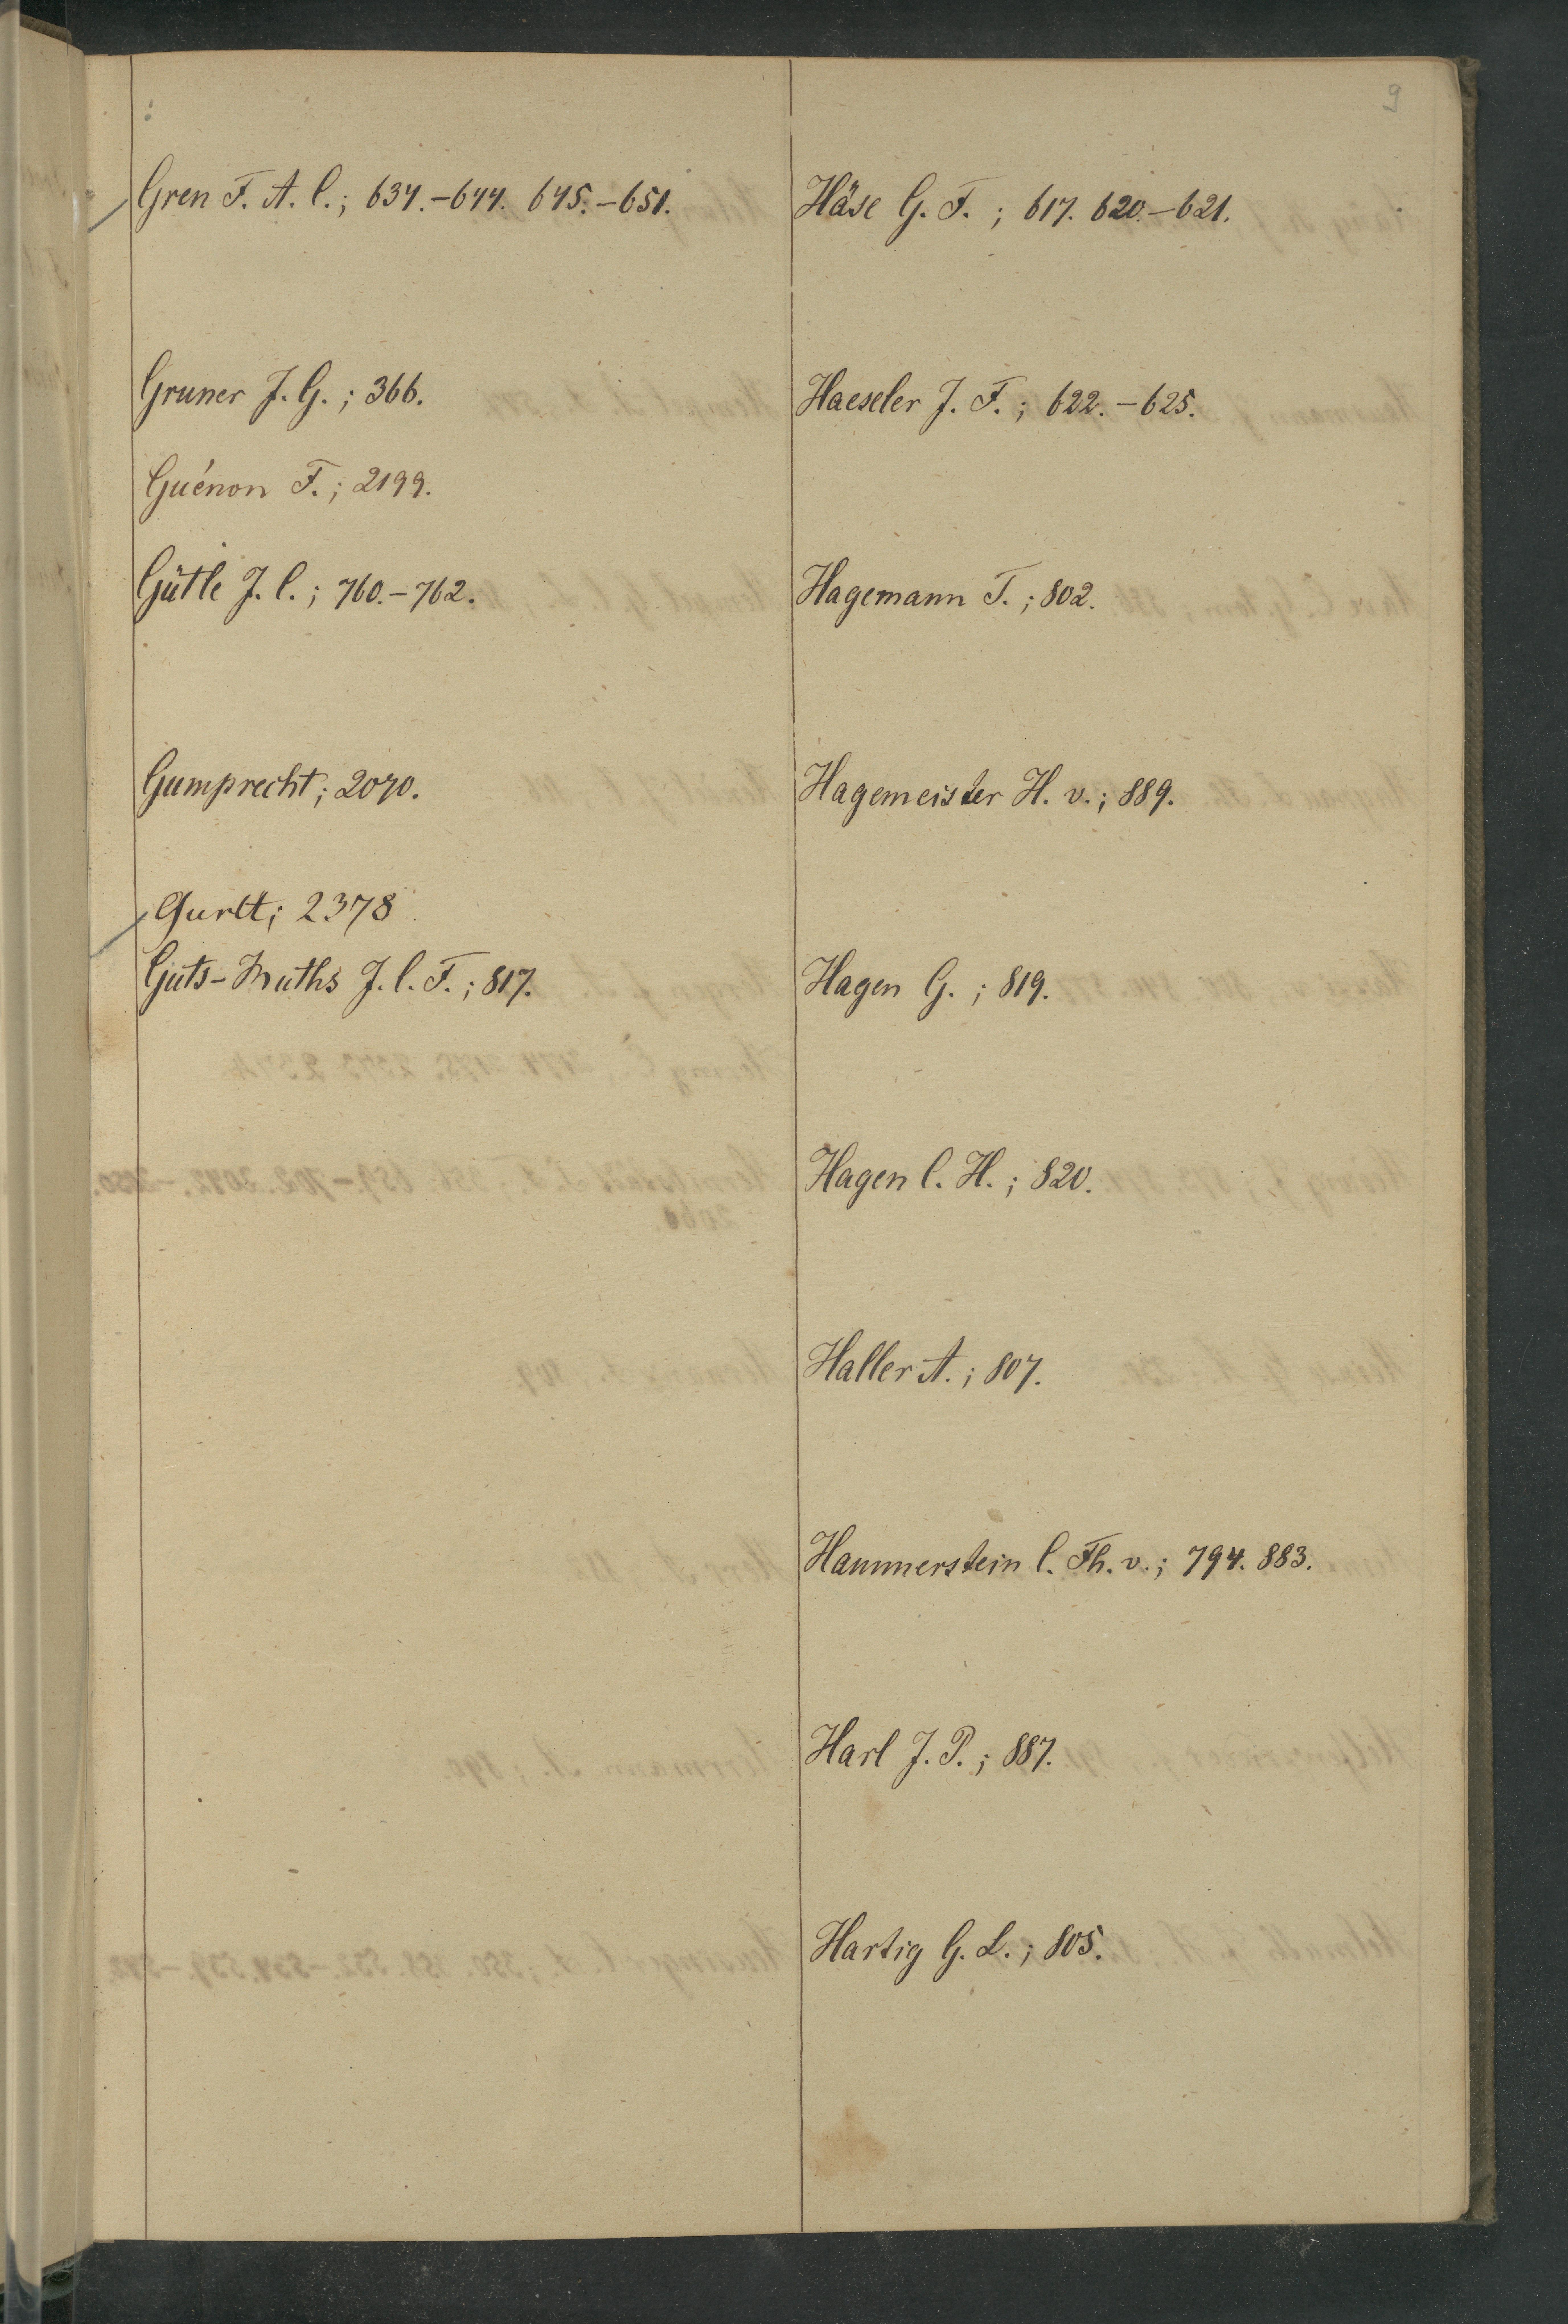 9
Gren F. A. C.; 634.-644. 645.-651.
Gruner J. G.; 366.
Guénon F.; 2199.
Gütle J. C.; 760.-762.
Gumprecht; 2070.
Gurlt; 2378
Guts-Muths J. C. F.; 817.
Häse G. F.; 617. 620.-621.
Haeseler J. F.; 622.-625.
Hagemann T.; 802.
Hagemeister H. v.; 889.
Hagen G.; 819.
Hagen C. H.; 820.
Haller A.; 807.
Hammerstein C. Th. v.; 794. 883.
Harl J. P.; 887.
Hartig G. L.; 805.